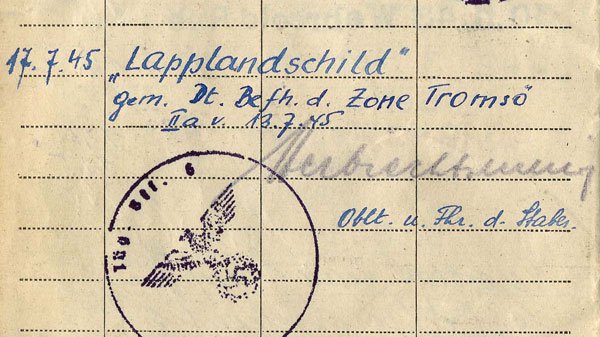 17.7.45 „Lapplandschild"
gem. Dt. Befh. d. Zone Tromsö
IIa v. 13.7.45
Oblt. u. Fhr. d. Stabes.